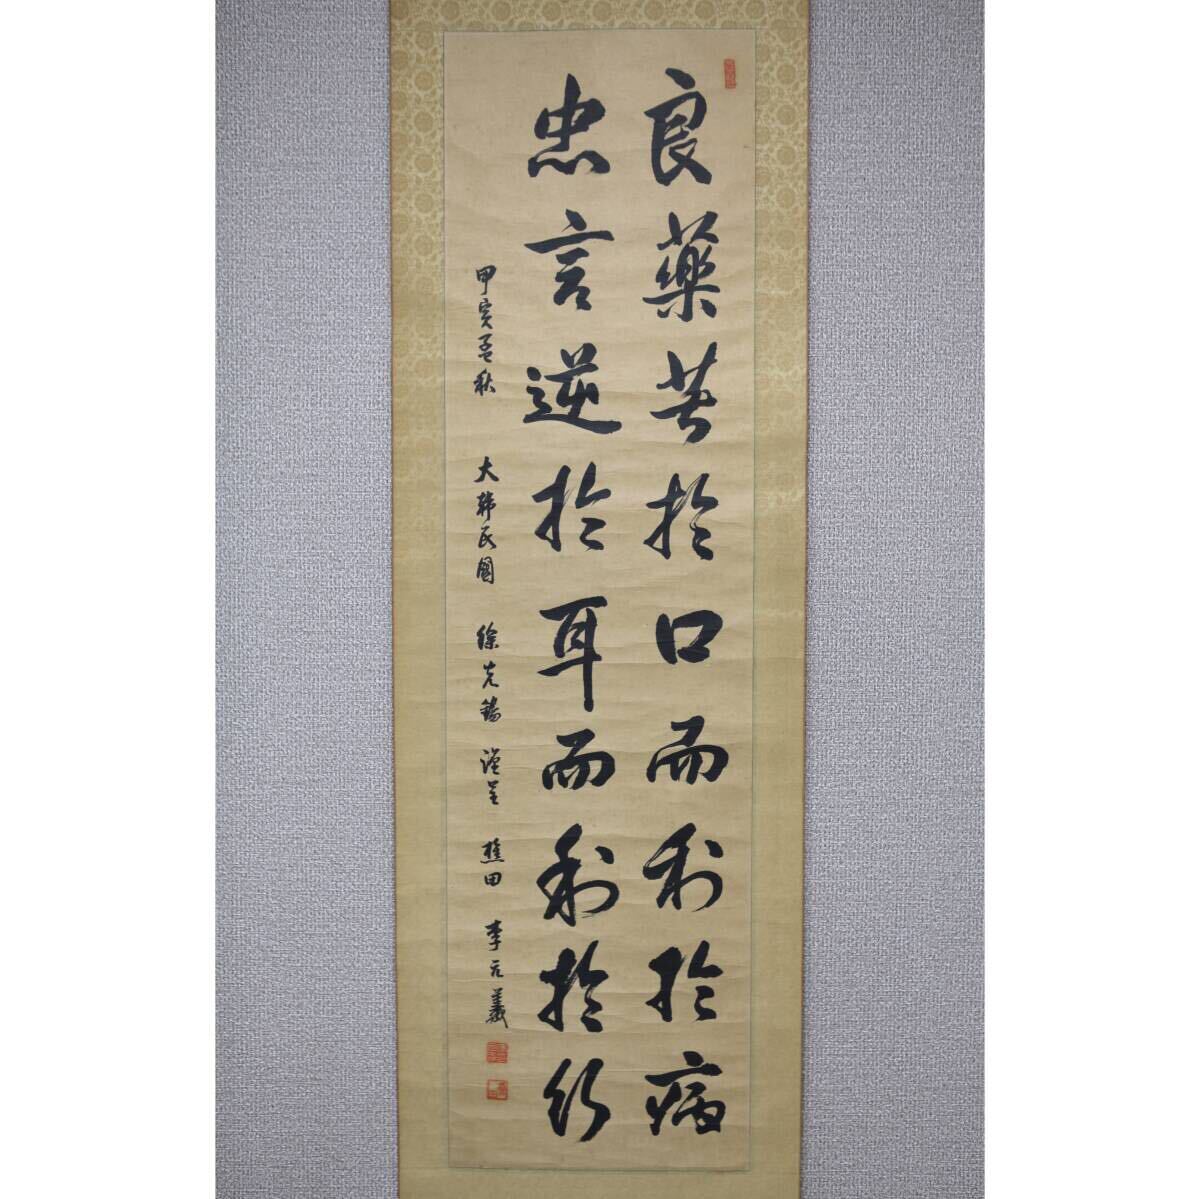 良藥苦於口而利於病
忠言逆於耳而利於行
甲寅孟秋 大韓民國 徐先鏞 謹呈 樵田 李元羲